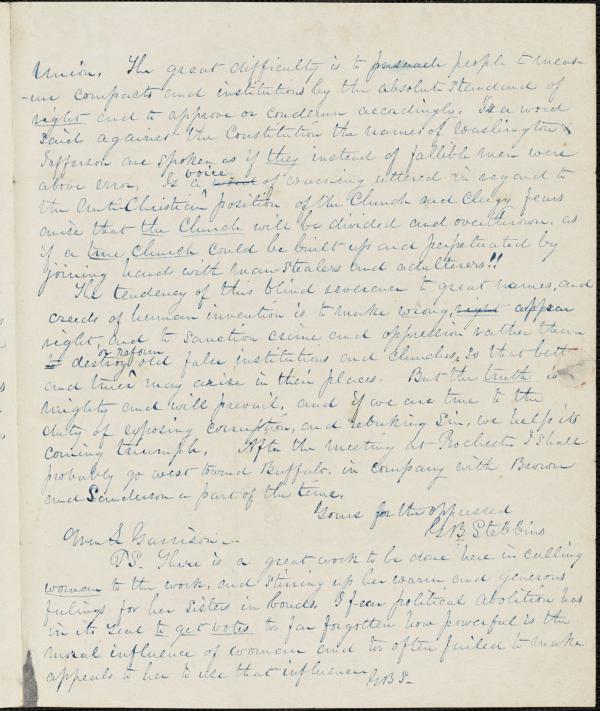 Union. The great difficulty is to persuade people to meas-
-ure compacts and institutions by the absolute standard of
right and to approve or condemn accordingly. Is a word
said against the Constitution the names of Washington &
Jefferson are spoken as if they instead of fallible men were
above error. Is a voice of warning uttered in regard to
the Anti-Christian position of the Church and Clergy fears
arise that the Church will be divided and overthrown, as
if a true Church could be built up and perpetuated by
joining hands with man-stealers and adulterers!!
The tendency of this blind reverence to great names, and
creeds of human invention is to make wrong, right appear
right, and to sanction crime and oppression rather than
to destroy or reform old false institutions and churches, so that bett-
and truer may arise in their places. But the truth is
mighty and will prevail, and if we are true to the
duty of exposing corruption, and rebuking Sin, we help its
coming triumph. After the meeting at Rochester I shall
probably go west toward Buffalo, in company with Brown
and Sanderson a part of the time.
Yours for the oppressed
G.B. Stebbins
Wm L Garrison—
PS. There is a great work to be done here in calling
woman to the work, and stirring up her warm and generous
feelings for her Sisters in bonds. I fear political abolition has
in its zeal to get votes too far forgotten how powerful is the
moral influence of woman and too often failed to make
appeals to her to use that influence. GBS—